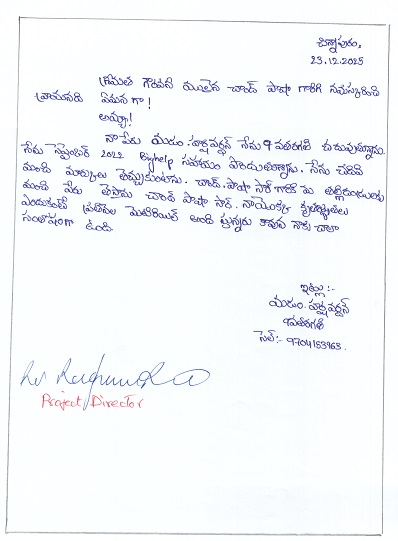 చిన్నాపురం,
23.12.2025
శ్రీమతి గౌరవనీ ములైన చాంద్ పాషా గారికి నమస్కరించి
వ్రాయునది ఏమన గా!
అయ్యా!
నా పేరు మడుం.హర్షవర్ధన్ నేను 9 వతరగతి చదువుతున్నాను.
నేను సెప్టెంబర్ 2022 Bighelp సహాయం పొందుతున్నాను. నేను చదివి
మంచి మార్కులు తెచ్చుకుంటాను. చాంద్.పాషా సార్ గారికి మా తల్లిదండ్రులకు
మంచి పేరు తెస్తాను చాంద్ పాషా సార్. నాయొక్క కృతజ్ఞతలు
ఎందుకంటే ప్రతినెల మెటీరియల్ అంది స్తున్నారు కావున నాకు చాలా
సంతోషంగా ఉంది.
ఇట్లు :-
మడుం.హర్షవర్ధన్
9వతరగతి
సెల్:- 9704163963.
Project Director